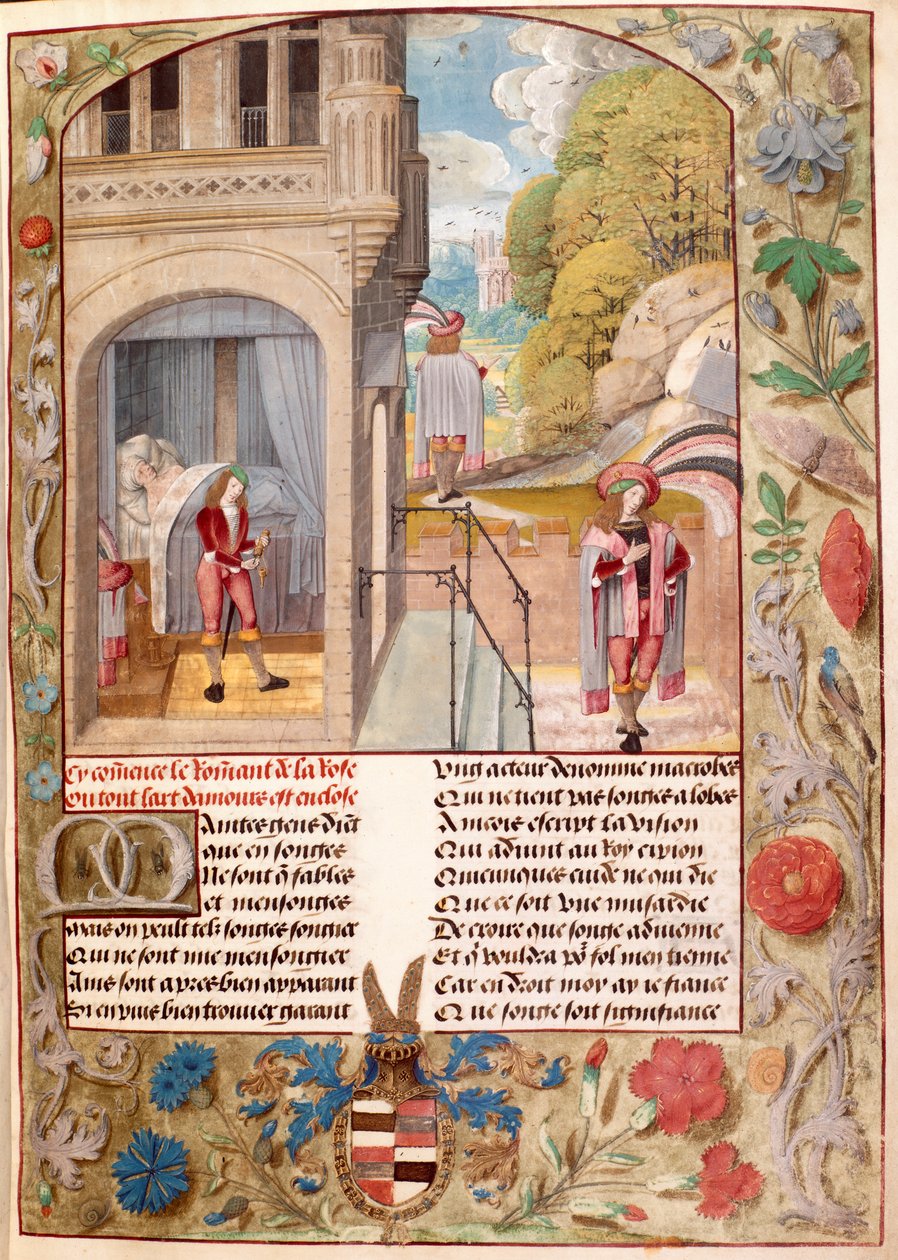 Cy com̃ence le Rom̃ant de la Rose
Ou tout lart damours est enclose
Maintes gens diẽt
que en songes
Ne sont q̃ fables
et mensonges
Mais on peult telz songes songier
Qui ne sont mie mensongier
Ains sont apres bien apparant
Si en puis bien trouuer garant
Vng acteur denomme macrobes
Qui ne tient pas songes a lobes
Aincois escript la vision
Qui aduint au Roy cipion
Quicunques cuide ne qui die
Que ce soit vne musardie
De croire que songe aduienne
Et q̃ vouldra po᷑ fol men tienne
Car en droit moy ay ie fiance
Que songe soit signifiance